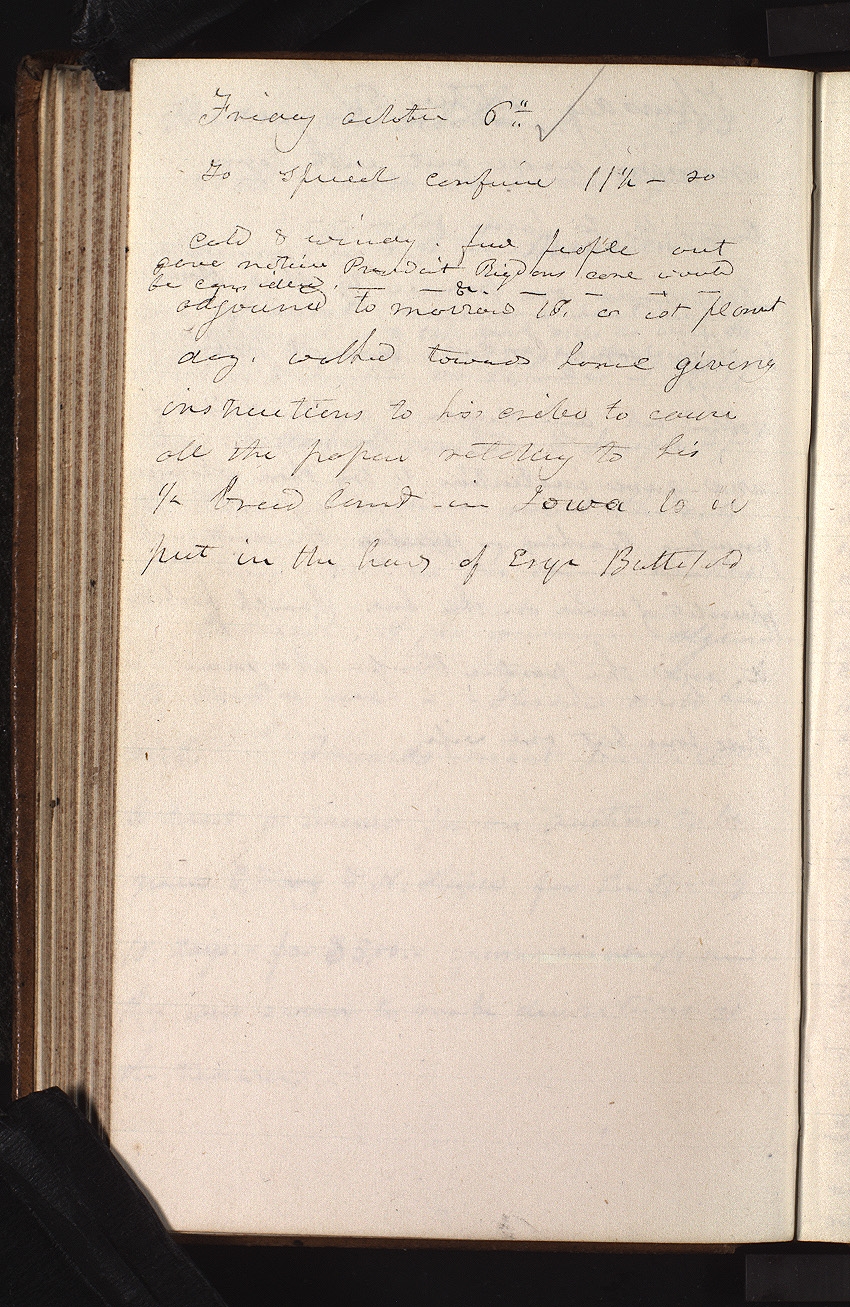 Friday october 6th
to special confernce 11½ — so
cold & windy. few people out
gave notice President Rigdons case would
be considered. &c.
adjourned to morrow 10. or 1st pleasant
day. walked towards home giving
instructions to his scribe to cause
all the papers relating to his
½ breed land in Iowa to be
put in the hands of Esqr Butterfield